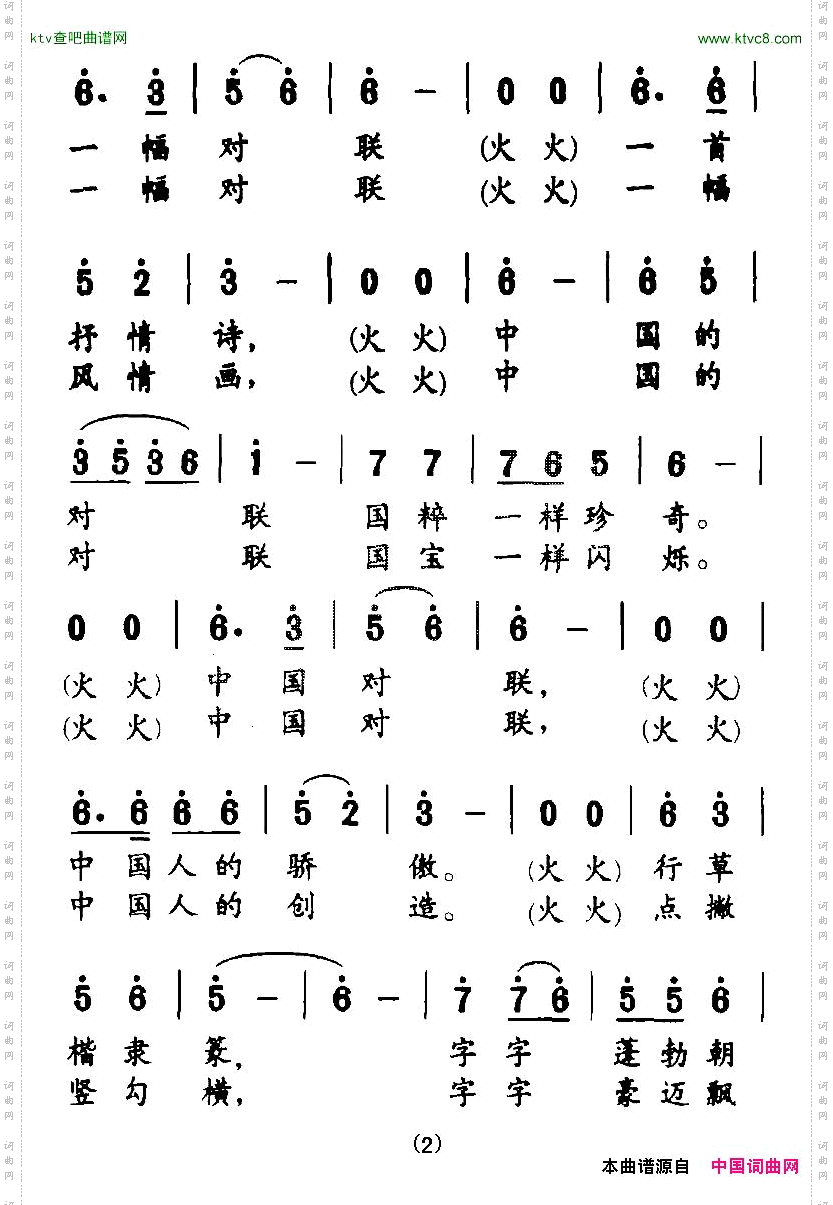 ktv查吧曲谱网 www.ktvc8.com
6̇. 3̇ | 5̇ 6̇ | 6̇ - | 0 0 | 6̇. 6̇ |
一 幅 对 联 (火 火) 一 首
一 幅 对 联 (火 火) 一 幅
5̇ 2̇ | 3̇ - | 0 0 | 6̇ - | 6̇ 5̇ |
抒 情 诗, (火 火) 中 国 的
风 情 画, (火 火) 中 国 的
3̇ 5̇ 3̇ 6 | 1̇ - | 7 7 | 7 6 5 | 6 - |
对 联 国 粹 一 样 珍 奇。
对 联 国 宝 一 样 闪 烁。
0 0 | 6̇. 3̇ | 5̇ 6̇ | 6̇ - | 0 0 |
(火 火) 中 国 对 联, (火 火)
(火 火) 中 国 对 联, (火 火)
6̇. 6̇ 6̇ 6̇ | 5̇ 2̇ | 3̇ - | 0 0 | 6̇ 3̇ |
中 国 人 的 骄 傲。 (火 火) 行 草
中 国 人 的 创 造。 (火 火) 点 撇
5̇ 6̇ | 5̇ - | 6̇ - | 7̇ 7̇ 6̇ | 5̇ 5̇ 6̇ |
楷 隶 篆, 字 字 蓬 勃 朝
竖 勾 横, 字 字 豪 迈 飘
(2)
本曲谱源自 中国词曲网